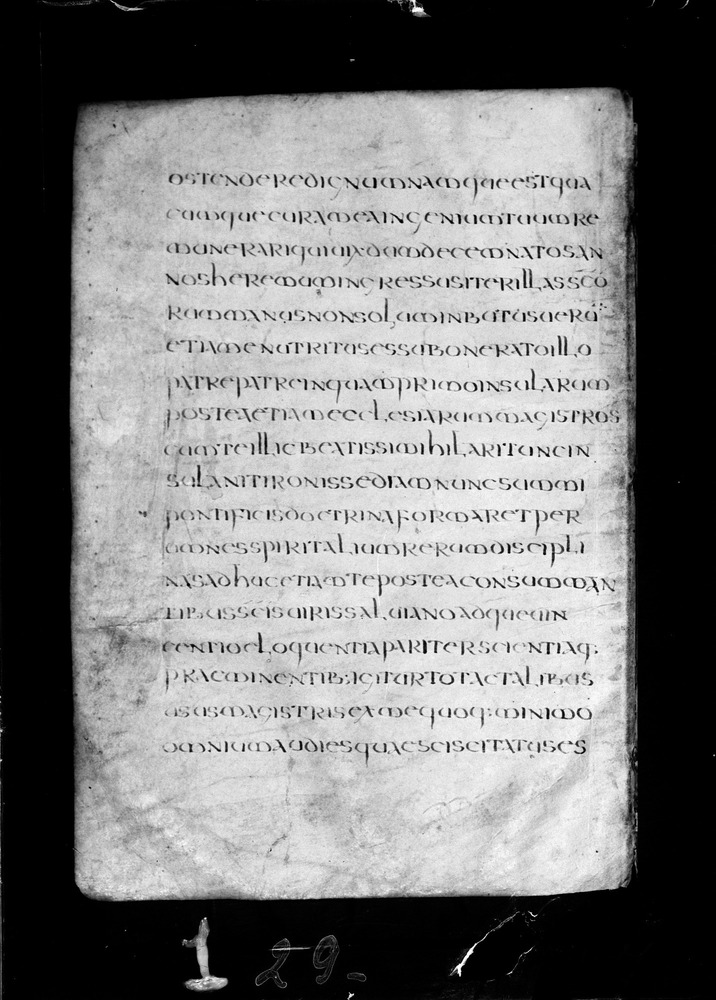 OSTENDEREDIGNUMNAMQUEESTQUA
CUMQUECURAMEXINGENIUMTUUMRE
MUNERARIQUIUIXDUMDECEMNATOSAN
NOSHEREMUMINGRESSUSITERILLASSCO
RUMMANUSNONSOLUMINBUTUSUERU
ETIAMENUTRITUSESSUBONERATOILLO
PATREPATREINQUAMPRIMOINSULARUM
POSTEAETIAMECCLESIARUMMAGISTROS
CUMTEILLICBEATISSIMIHILARITUNCIN
SULANITIRONISSEDIAMNUNCSUMMI
PONTIFICISDOCTRINAFORMARETPER
OMNESSPIRITALIUMRERUMDISCIPLI
NASADHUCETIAMTEPOSTEACONSUMMAN
TIBUSSCISUIRISSALUIANOADQUEUIN
CENTIOELOQUENTIAPARITERSCIENTIAQ:
PRAEMINENTIB:IGITURTOTACTALIBUS
USUSMAGISTRISEXMEQUOQ:MINIMO
OMNIUMAUDIESQUAESCISCITATUSES
29-